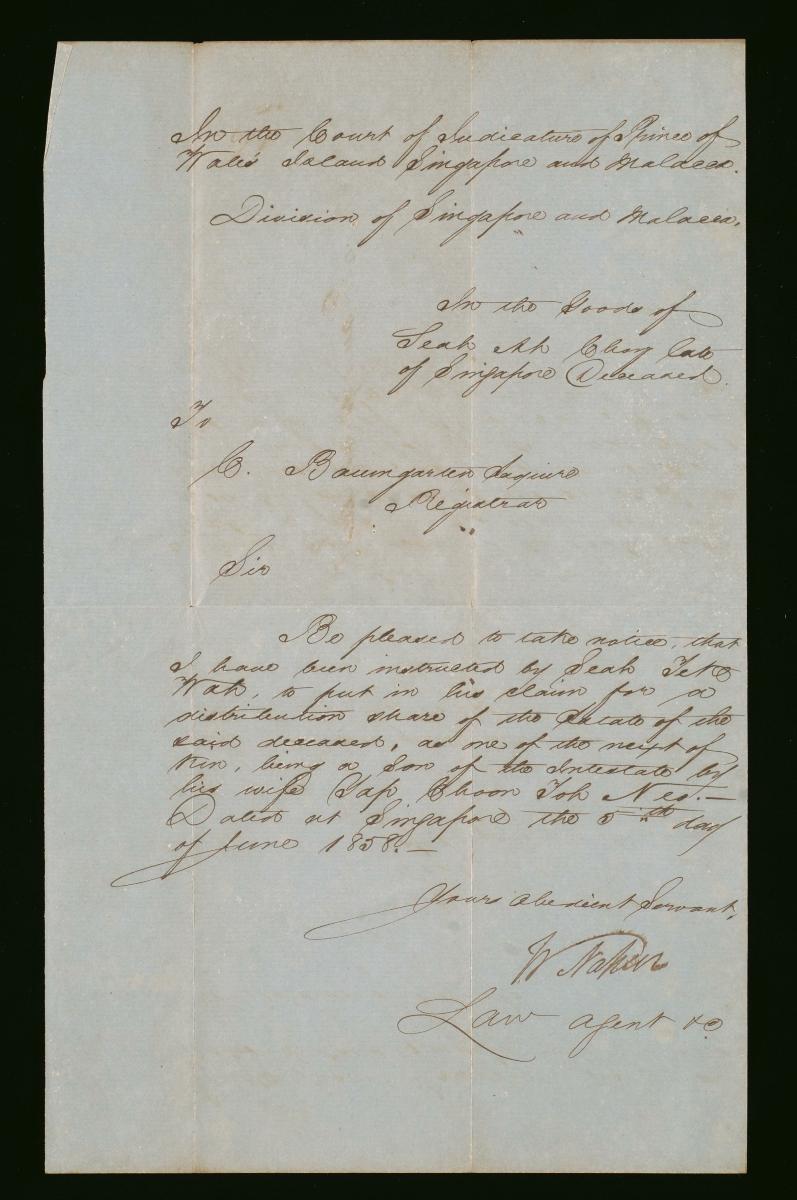 In the Court of Judicature of Prince of
Wales Island Singapore and Malacca.
Division of Singapore and Malacca.
In the Goods of
Seah Ah Choy late
of Singapore Deceased.
To
C. Baumgarten Esquire
Registrar
Sir
Be pleased to take notice, that
I have been instructed by Seah Tek
Wah, to put in his claim for a
distribution share of the Estate of the
said deceased, as one of the next of
Kin, being a Son of the Intestate by
his wife Yap Choon Joh Neo.—
Dated at Singapore the 5th day
of June 1858.—
Yours obedient Servant,
W
Law agent &c